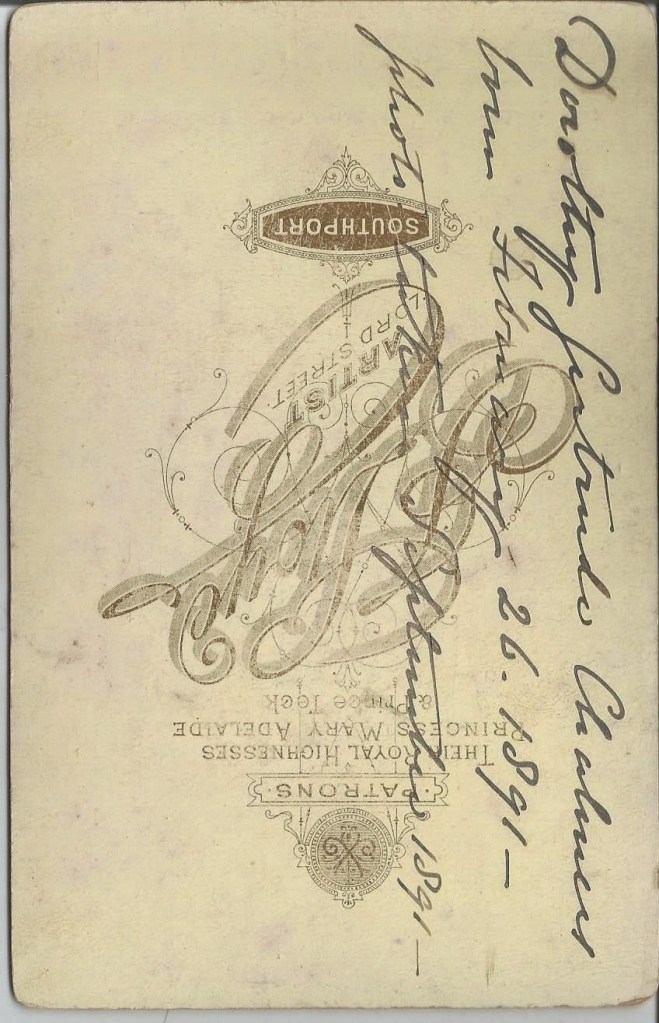 Dorothy Gertrude Chalmers
born February 26. 1891 —
photo taken September 1891 —
PATRONS
THEIR ROYAL HIGHNESSES
PRINCESS MARY ADELAIDE
& Prince Teck
ARTIST
LORD STREET
SOUTHPORT